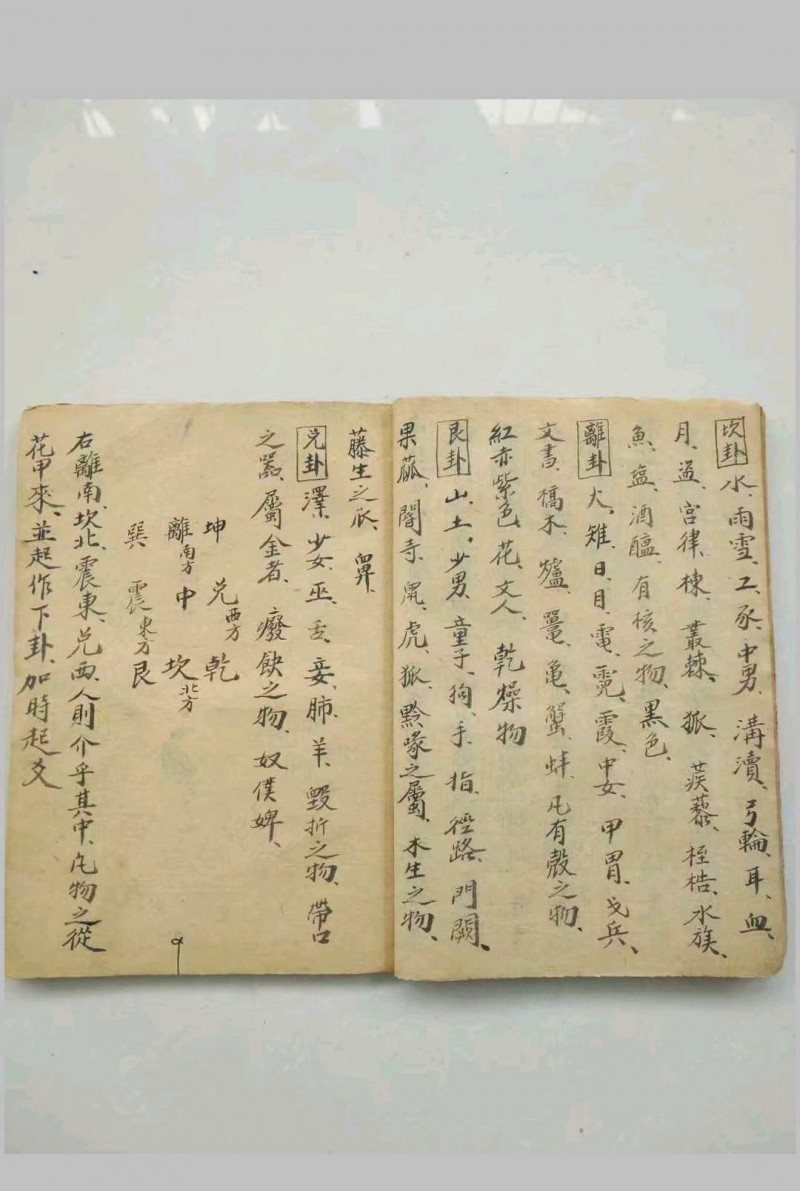 坎卦 水、雨雪、工、豕、中男、溝瀆、弓輪、耳、血、
月、盗、宮律、棟、叢棘、狐、蒺藜、桎梏、水族、
魚、盐、酒醖、有核之物、黑色、
離卦 火、雉、日、目、電、霓、霞、中女、甲胃、戈兵、
文書、槁木、爐、鼍、亀、蟹、蚌、凡有殼之物、
紅赤紫色、花、文人、乾燥物
艮卦 山、土、少男、童子、狗、手、指、徑路、門闕、
果蓏、閽寺、鼠、虎、狐、黔喙之屬、木生之物、
藤生之瓜、鼻、
兌卦 澤、少女、巫、舌、妾、肺、羊、毀折之物、帶口
之器、屬金者、癈缺之物、奴僕婢、
坤 兌西方 乾
離南方 中 坎北方
巽 震東方 艮
右離南、坎北、震東、兌西、人則介乎其中、凡物之從
花甲來、並起作下卦、加時起爻